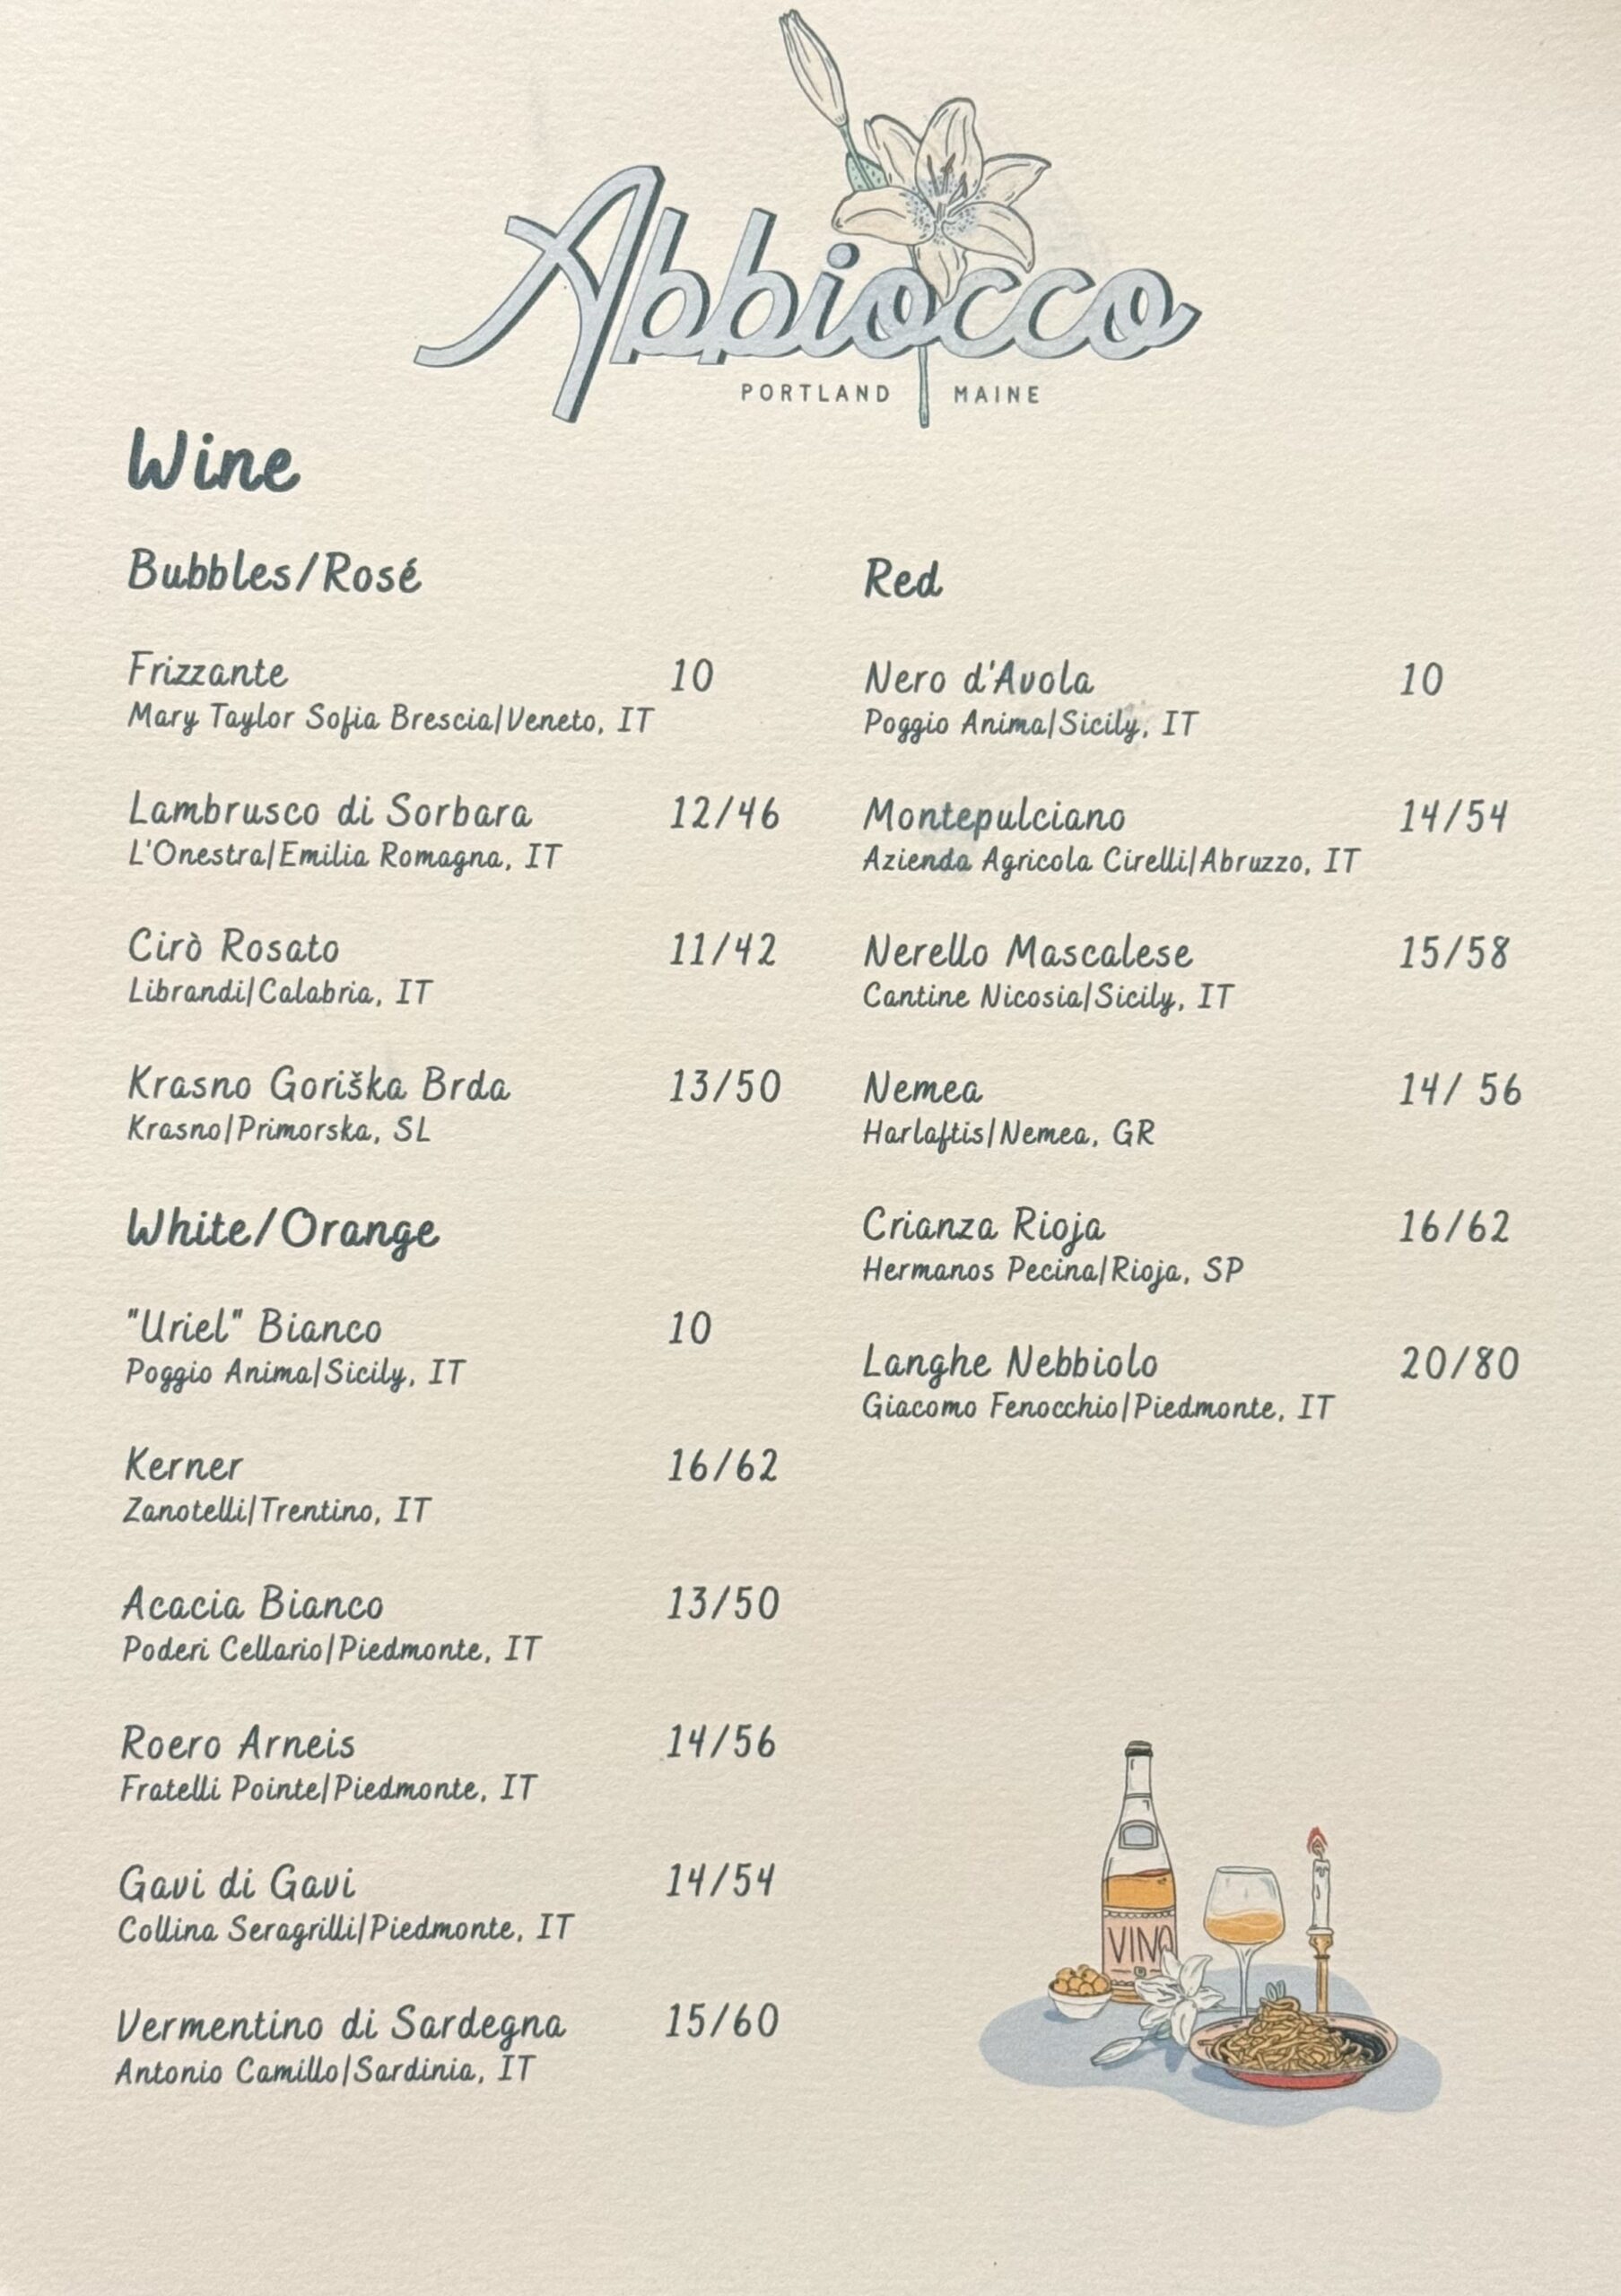 Abbiocco
PORTLAND MAINE
Wine
Bubbles/Rosé
Frizzante 10
Mary Taylor Sofia Brescia|Veneto, IT
Lambrusco di Sorbara 12/46
L'Onestra|Emilia Romagna, IT
Cirò Rosato 11/42
Librandi|Calabria, IT
Krasno Goriška Brda 13/50
Krasno|Primorska, SL
White/Orange
"Uriel" Bianco 10
Poggio Anima|Sicily, IT
Kerner 16/62
Zanotelli|Trentino, IT
Acacia Bianco 13/50
Poderi Cellario|Piedmonte, IT
Roero Arneis 14/56
Fratelli Pointe|Piedmonte, IT
Gavi di Gavi 14/54
Collina Seragrilli|Piedmonte, IT
Vermentino di Sardegna 15/60
Antonio Camillo|Sardinia, IT
Red
Nero d'Avola 10
Poggio Anima|Sicily, IT
Montepulciano 14/54
Azienda Agricola Cirelli|Abruzzo, IT
Nerello Mascalese 15/58
Cantine Nicosia|Sicily, IT
Nemea 14/ 56
Harlaftis|Nemea, GR
Crianza Rioja 16/62
Hermanos Pecina|Rioja, SP
Langhe Nebbiolo 20/80
Giacomo Fenocchio|Piedmonte, IT
VINO